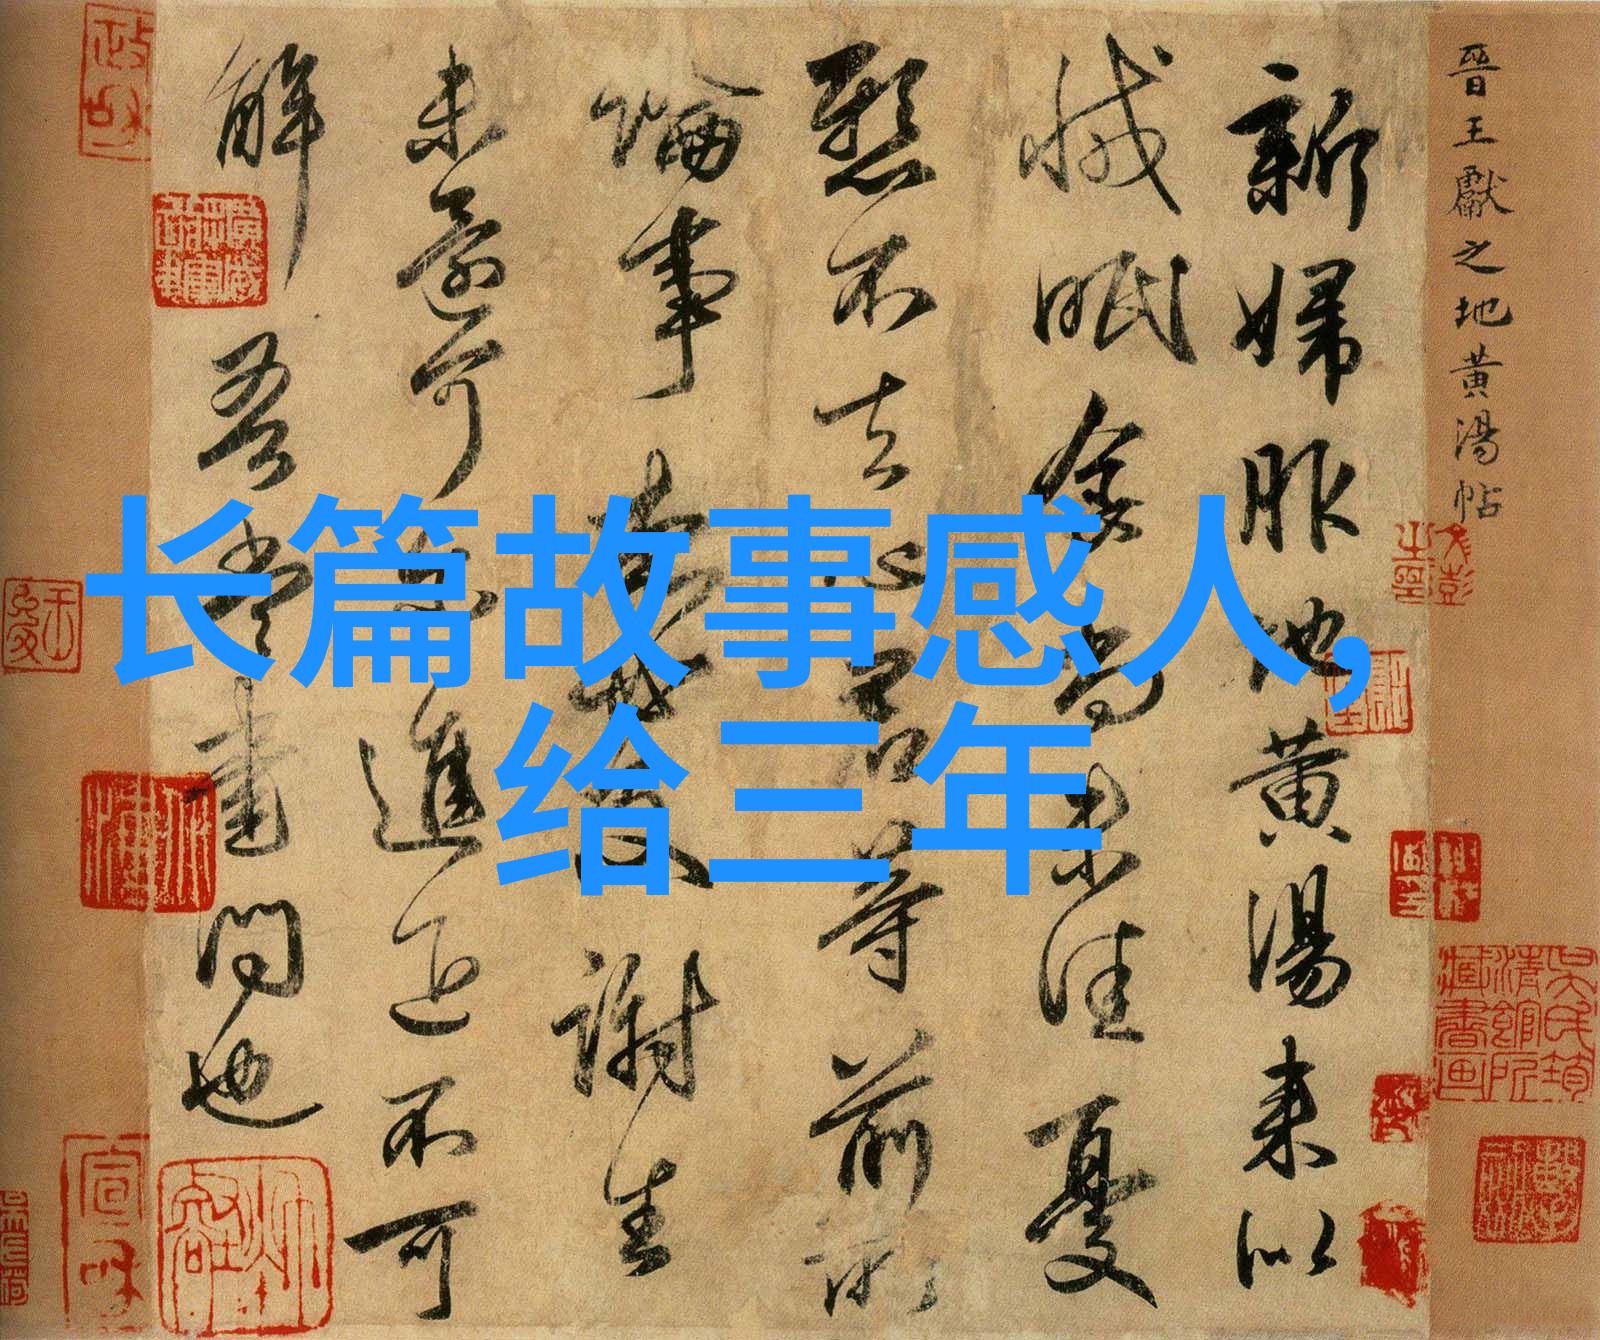 长篇故事感人,
给三年
晉王獻之地黃湯帖
新婦服地黄湯來似
減眠食尚未佳憂
懸不去心君等前所
論事想必及謝生
未還可尔進退不可
解吾當書問也